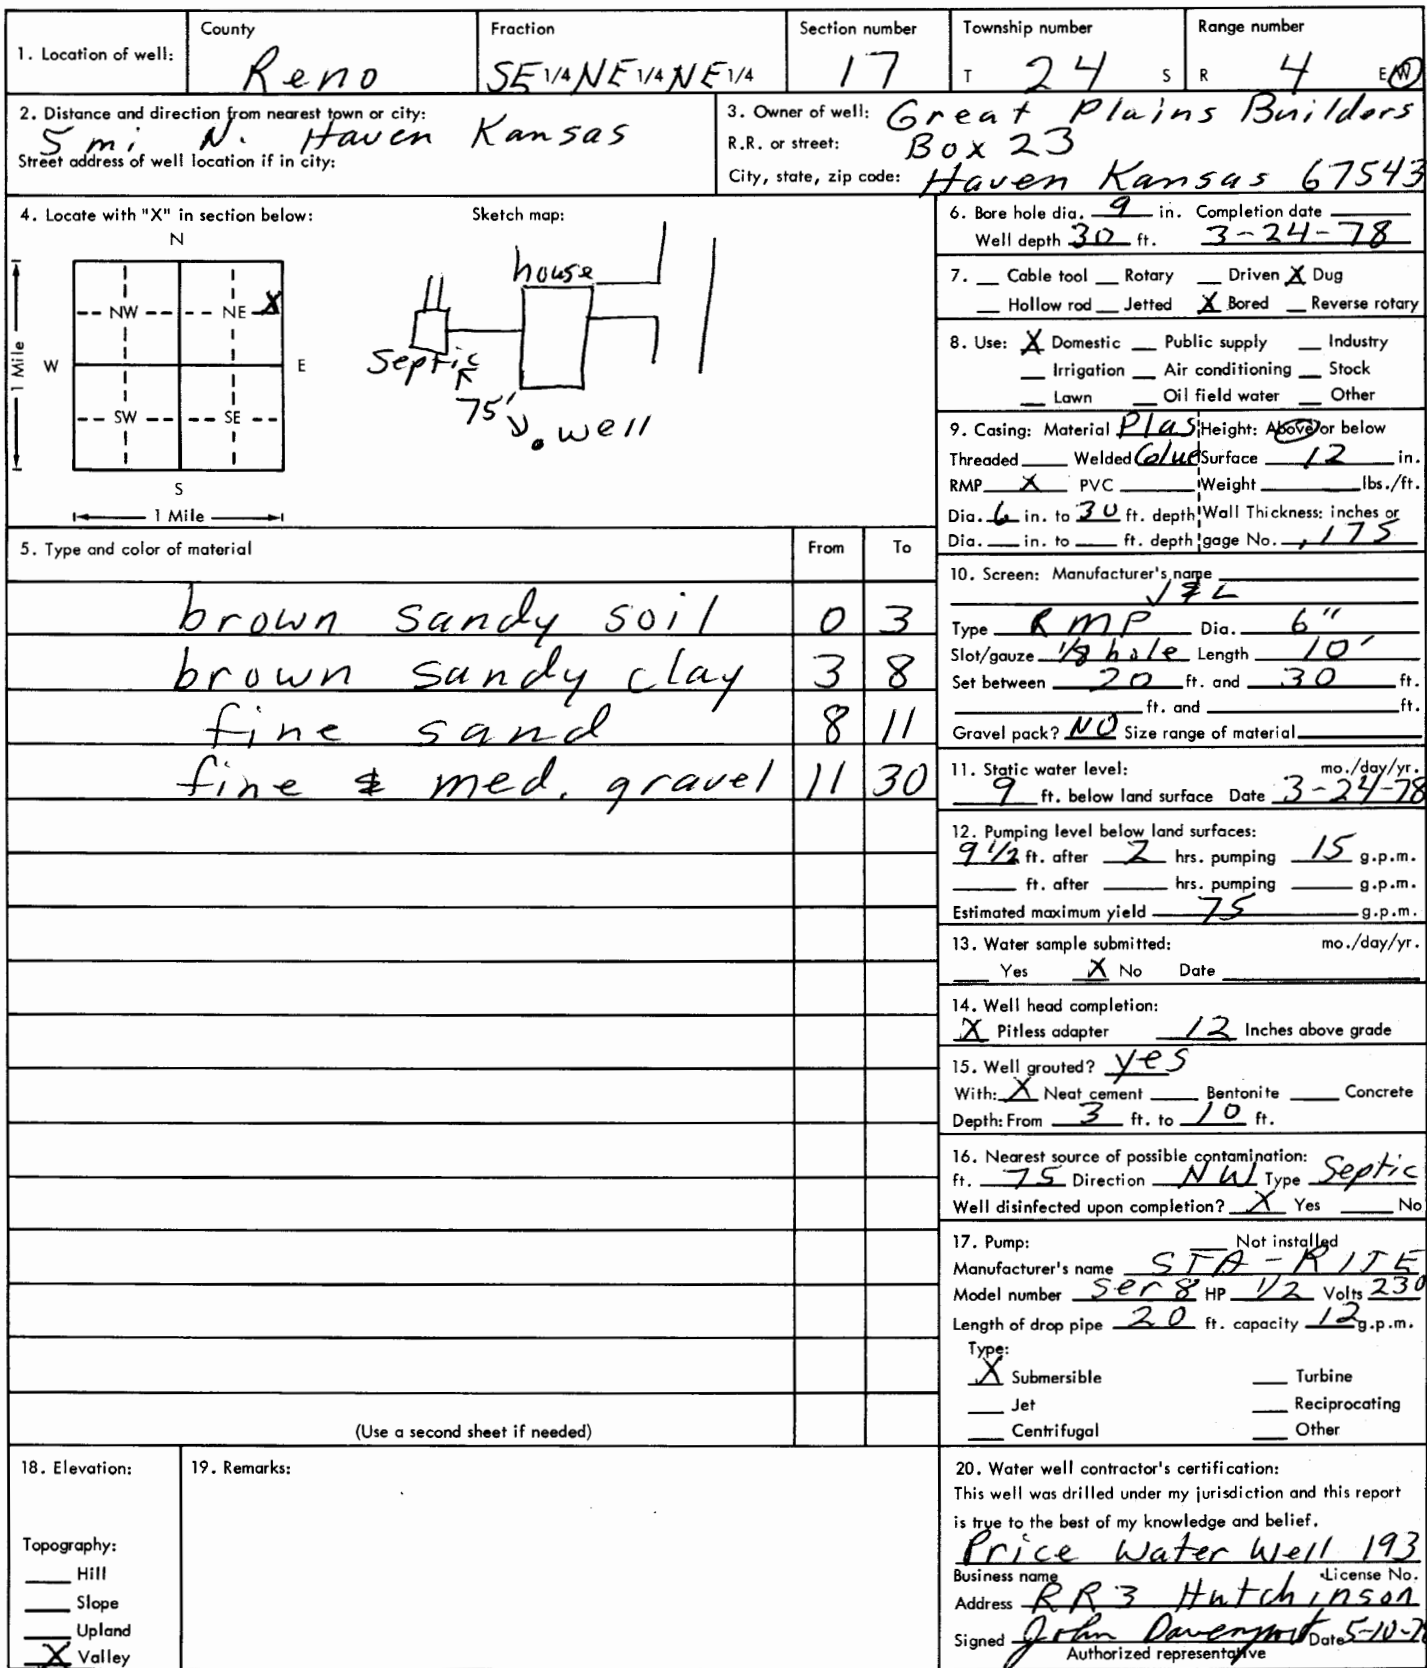 1. Location of well:
County
Reno
Fraction
SE 1/4 NE 1/4 NE 1/4
Section number
17
Township number
T 24 S
Range number
R 4 E/W
2. Distance and direction from nearest town or city:
5 mi N. Haven Kansas
Street address of well location if in city:
3. Owner of well: Great Plains Builders
R.R. or street: Box 23
City, state, zip code: Haven Kansas 67543
4. Locate with "X" in section below:
N
NW NE X
W E
SW SE
S
1 Mile
1 Mile
Sketch map:
house
Septic
75'
well
5. Type and color of material From To
brown sandy soil 0 3
brown sandy clay 3 8
fine sand 8 11
fine & med. gravel 11 30
(Use a second sheet if needed)
6. Bore hole dia. 9 in. Completion date
Well depth 30 ft. 3-24-78
7. __ Cable tool __ Rotary __ Driven X Dug
__ Hollow rod __ Jetted X Bored __ Reverse rotary
8. Use: X Domestic __ Public supply __ Industry
__ Irrigation __ Air conditioning __ Stock
__ Lawn __ Oil field water __ Other
9. Casing: Material Plas Height: Above or below
Threaded ____ Welded Glue Surface 12 in.
RMP X PVC ____ Weight ____ lbs./ft.
Dia. 6 in. to 30 ft. depth Wall Thickness: inches or
Dia. __ in. to __ ft. depth gage No. .175
10. Screen: Manufacturer's name
J & L
Type RMP Dia. 6"
Slot/gauze 1/8 hole Length 10'
Set between 20 ft. and 30 ft.
____ ft. and ____ ft.
Gravel pack? NO Size range of material
11. Static water level: mo./day/yr.
9 ft. below land surface Date 3-24-78
12. Pumping level below land surfaces:
9 1/2 ft. after 2 hrs. pumping 15 g.p.m.
____ ft. after ____ hrs. pumping ____ g.p.m.
Estimated maximum yield 75 g.p.m.
13. Water sample submitted: mo./day/yr.
__ Yes X No Date
14. Well head completion:
X Pitless adapter 12 Inches above grade
15. Well grouted? yes
With: X Neat cement ____ Bentonite ____ Concrete
Depth: From 3 ft. to 10 ft.
16. Nearest source of possible contamination:
ft. 75 Direction NW Type Septic
Well disinfected upon completion? X Yes ____ No
17. Pump: __ Not installed
Manufacturer's name STA-RITE
Model number Ser 8 HP 1/2 Volts 230
Length of drop pipe 20 ft. capacity 12 g.p.m.
Type:
X Submersible __ Turbine
__ Jet __ Reciprocating
__ Centrifugal __ Other
18. Elevation:
Topography:
__ Hill
__ Slope
__ Upland
X Valley
19. Remarks:
20. Water well contractor's certification:
This well was drilled under my jurisdiction and this report
is true to the best of my knowledge and belief.
Price Water Well 193
Business name License No.
Address RR 3 Hutchinson
Signed John Davenport Date 5-10-7
Authorized representative